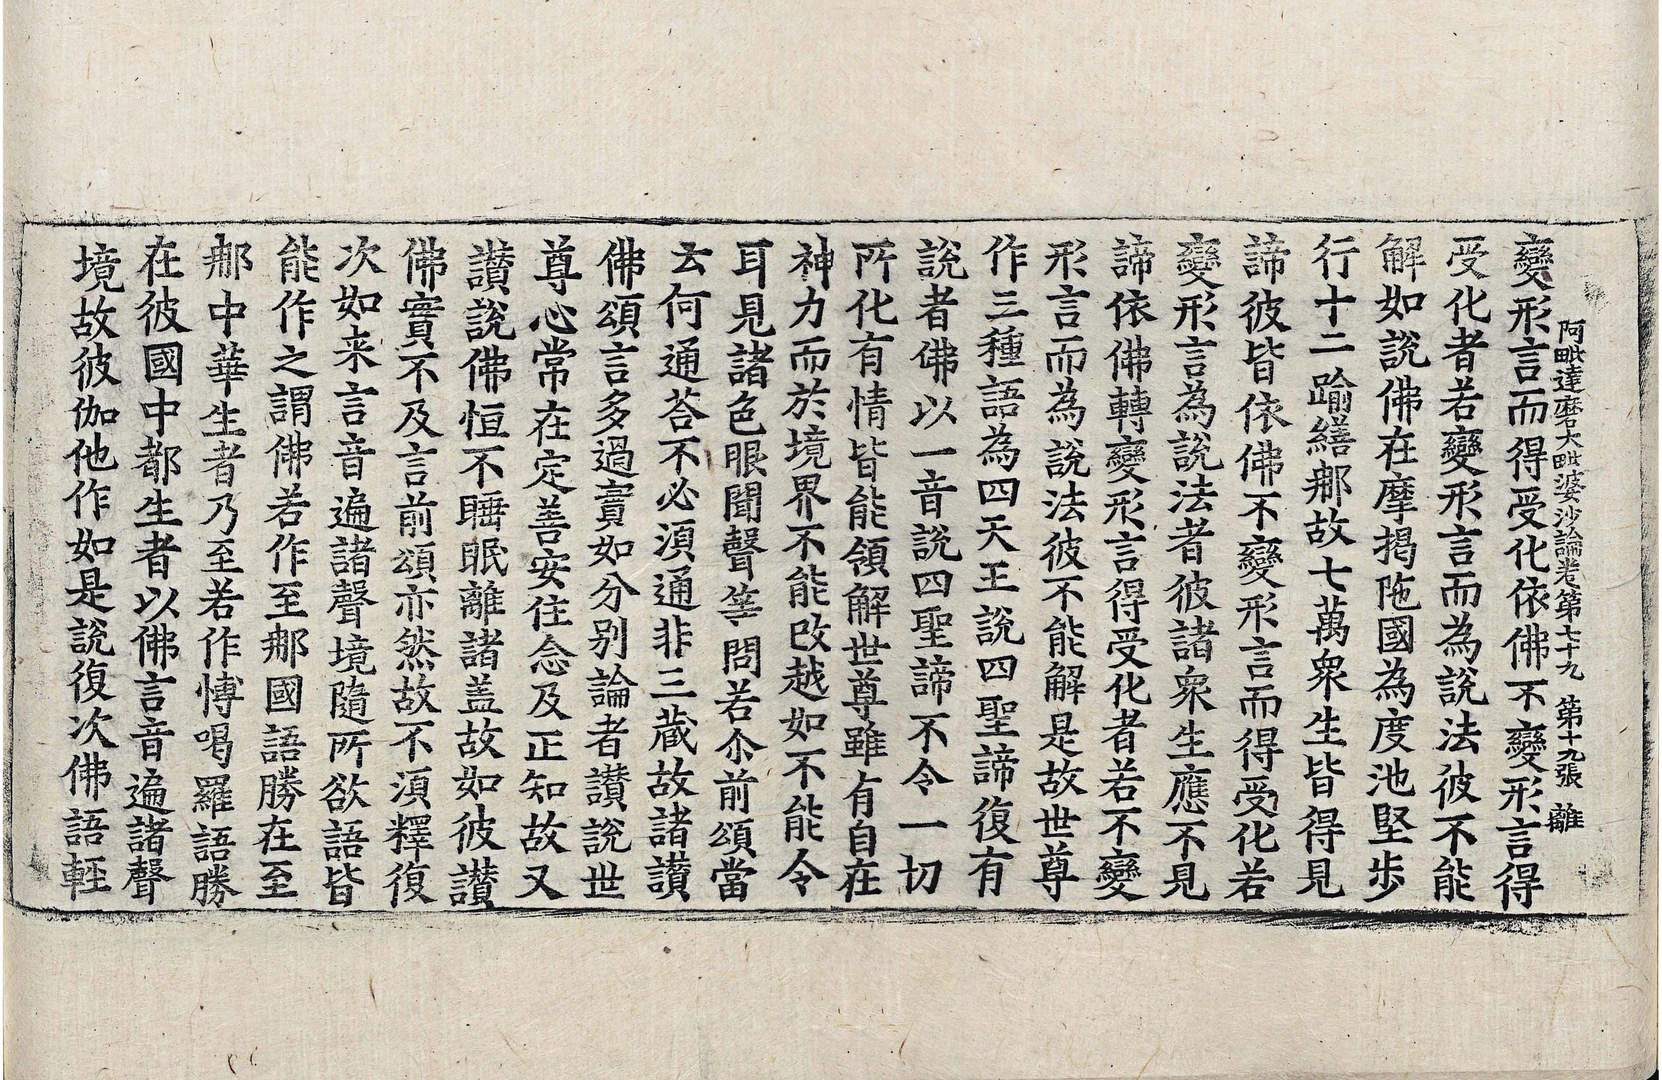 阿毗達磨大毗婆沙論卷第七十九　第十九張　離
變形言而得受化依佛不變形言得
受化者若變形言而為說法彼不能
解如說佛在摩揭陁國為度池堅步
行十二踰繕那故七萬衆生皆得見
諦彼皆依佛不變形言而得受化若
變形言為說法者彼諸衆生應不見
諦依佛轉變形言得受化者若不變
形言而為說法彼不能解是故世尊
作三種語為四天王說四聖諦復有
說者佛以一音說四聖諦不令一切
所化有情皆能領解世尊雖有自在
神力而於境界不能改越如不能令
耳見諸色眼聞聲等問若尒前頌當
云何通荅不必湏通非三藏故諸讃
佛頌言多過實如分別論者讃說世
尊心常在定善安住念及正知故又
讃說佛恒不睡眠離諸盖故如彼讃
佛實不及言前頌亦然故不湏釋復
次如来言音遍諸聲境隨所欲語皆
能作之謂佛若作至那國語勝在至
那中華生者乃至若作愽喝羅語勝
在彼國中都生者以佛言音遍諸聲
境故彼伽他作如是說復次佛語輕